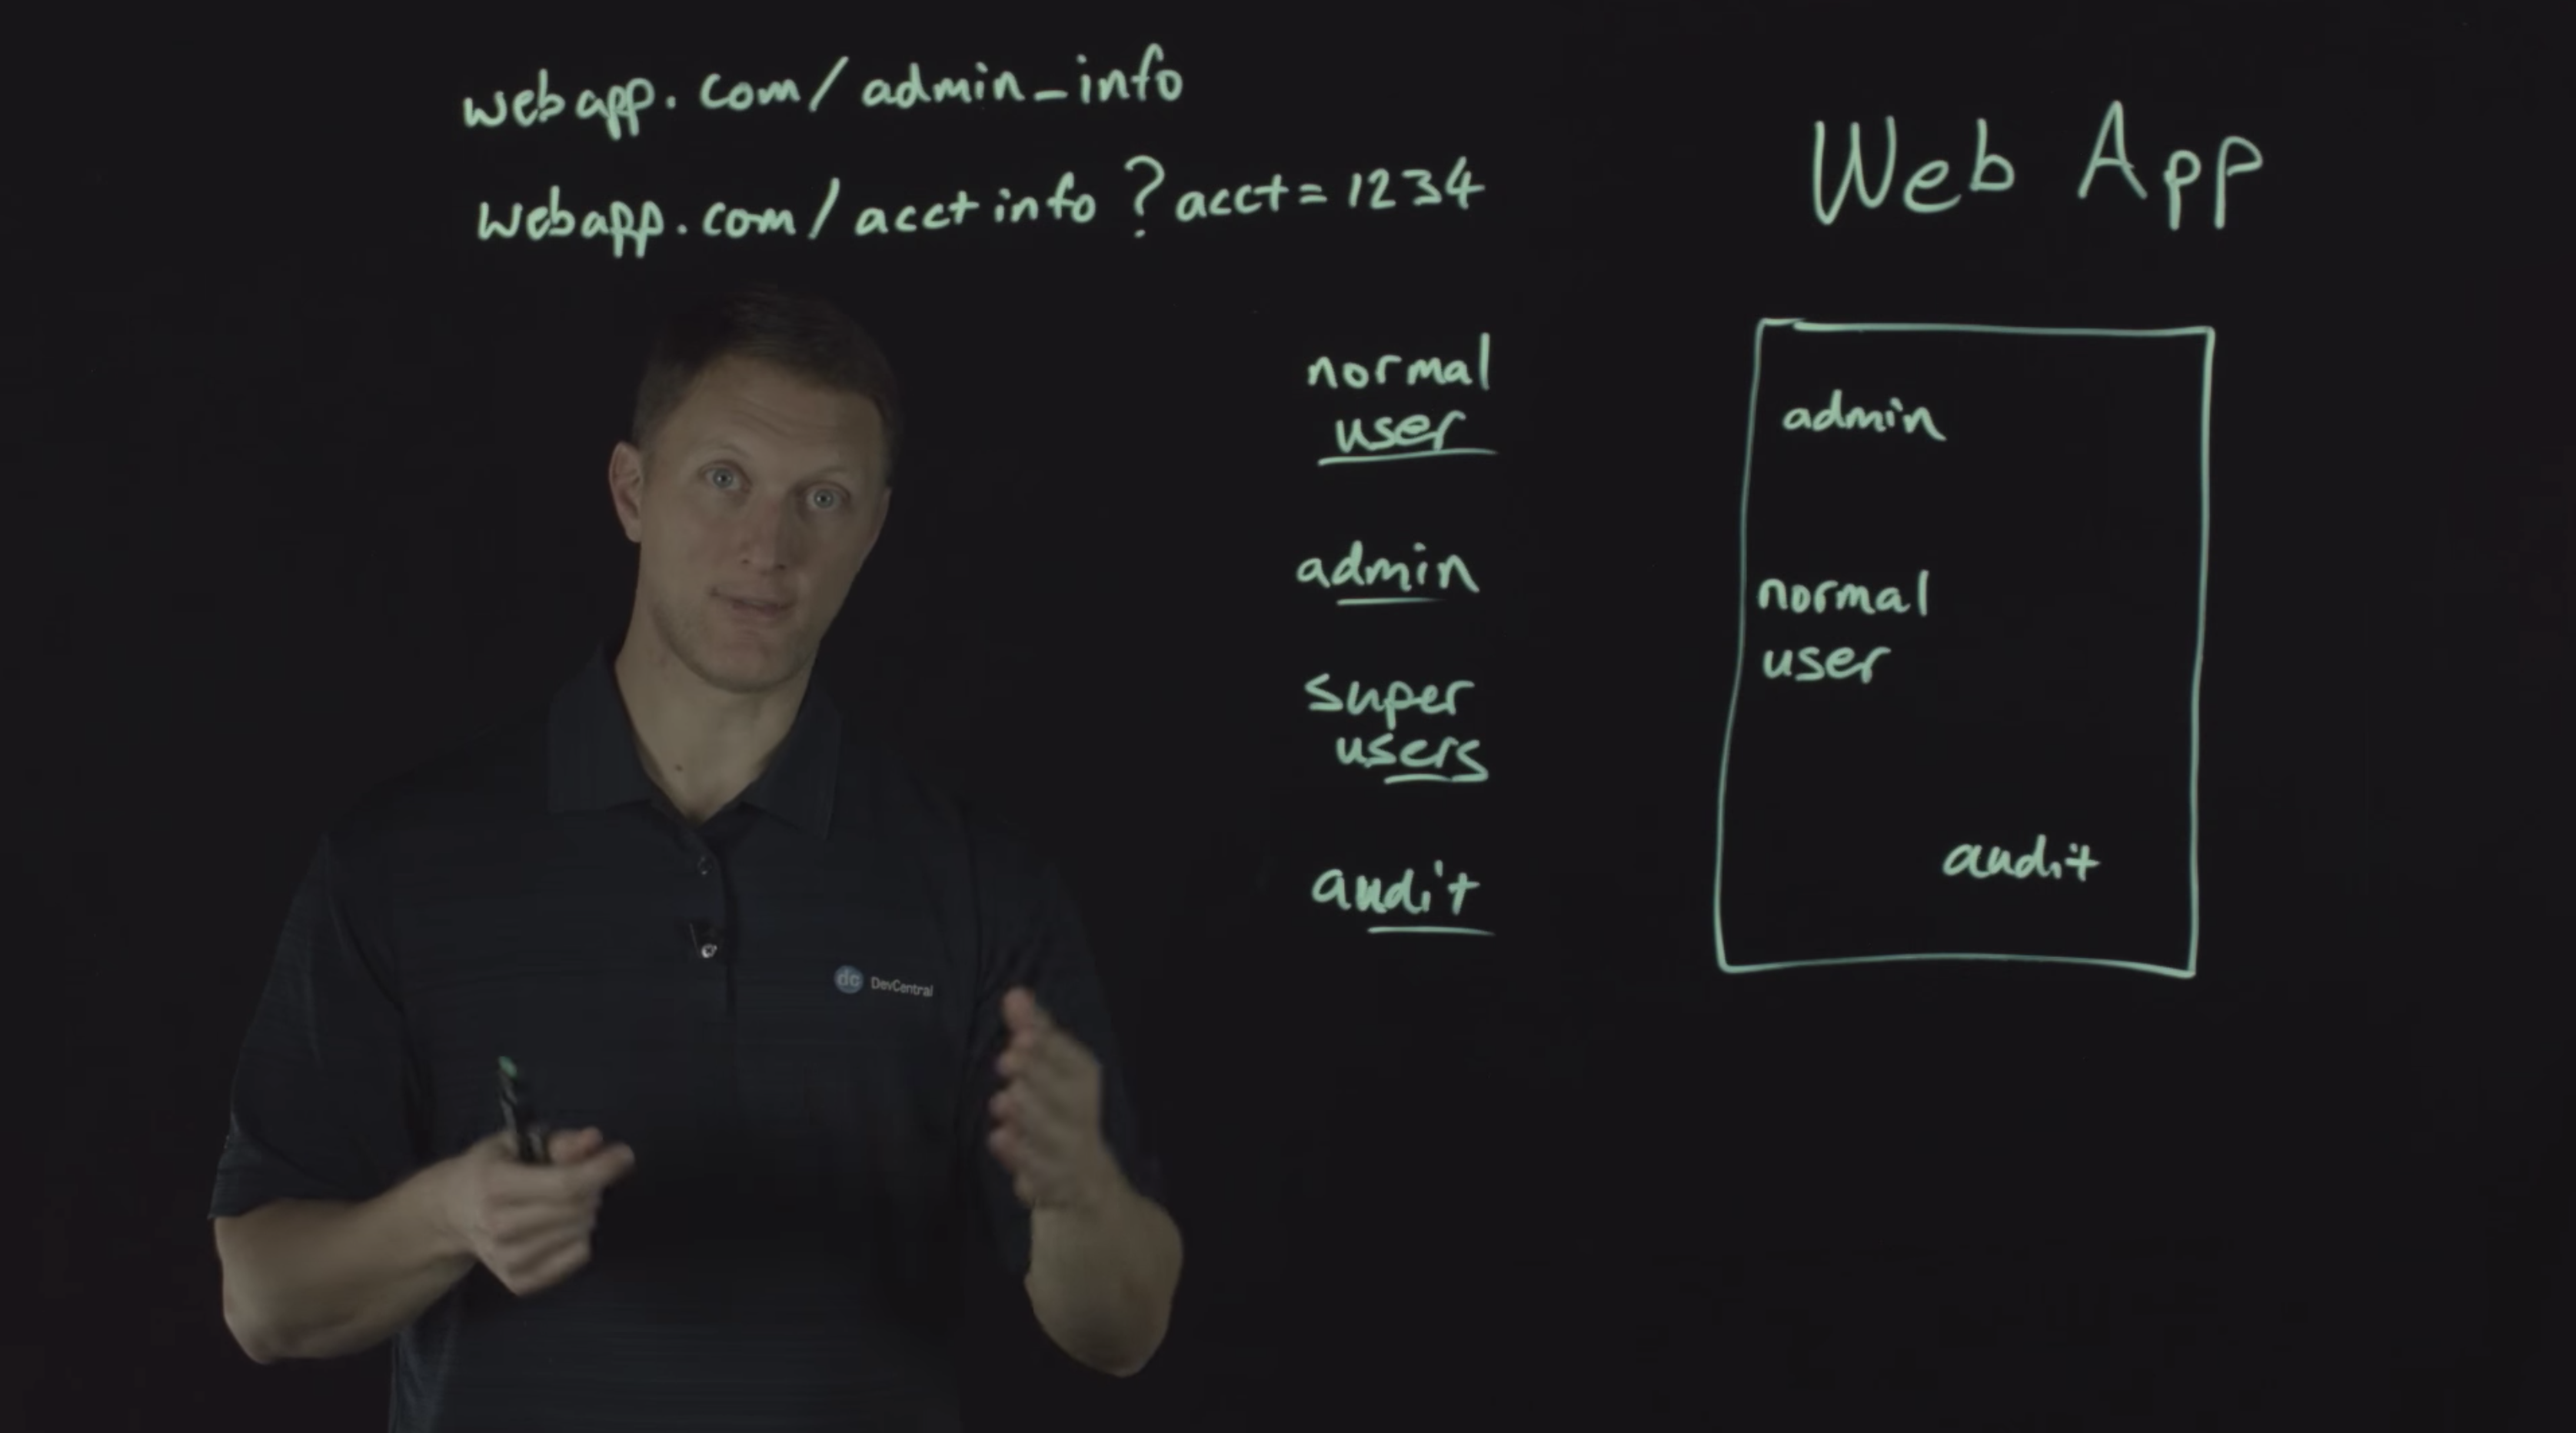 webapp.com/admin_info
webapp.com/acctinfo?acct=1234
Web App
normal
user
admin
super
users
audit
admin
normal
user
audit
dc DevCentral